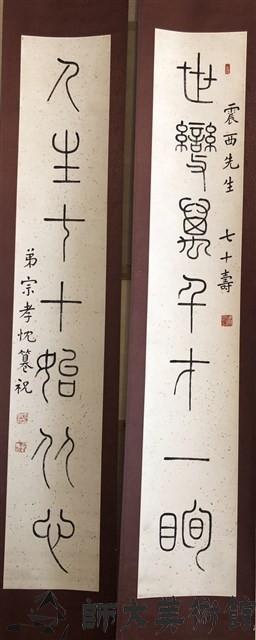 震西先生 七十壽
世變萬千才一眴
人生七十始从心
弟宗孝忱篆祝
師大美術館